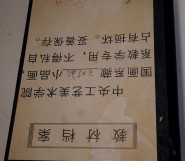 教材档案
中央工艺美术学院
国画系藏 小品画,
系教学专用,不得私自
占有损坏。妥善保存。